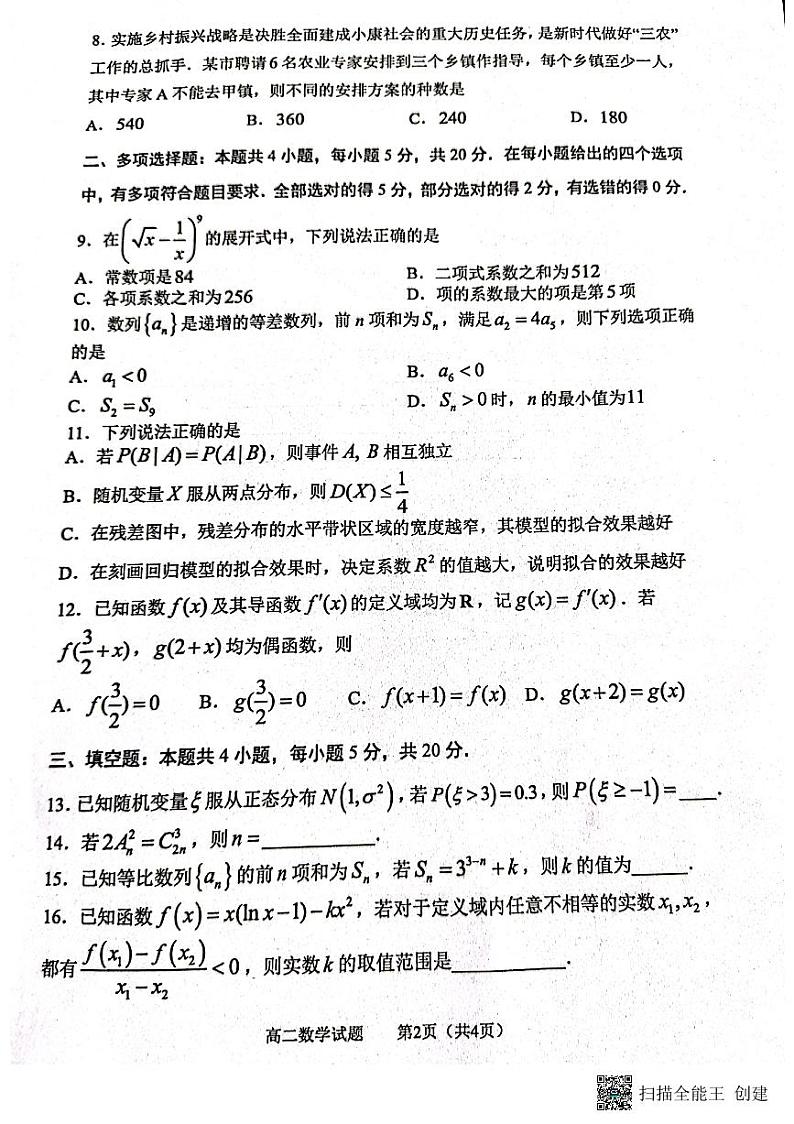 8. 实施乡村振兴战略是决胜全面建成小康社会的重大历史任务, 是新时代做好“三农”
工作的总抓手．某市聘请6名农业专家安排到三个乡镇作指导，每个乡镇至少一人，
其中专家A不能去甲镇，则不同的安排方案的种数是
A. 540 B. 360 C. 240 D. 180
二、多项选择题：本题共4小题，每小题5分，共20分．在每小题给出的四个选项
中，有多项符合题目要求．全部选对的得5分，部分选对的得2分，有选错的得0分．
9. 在(√x − 1/x)^9 的展开式中，下列说法正确的是
A. 常数项是84 B. 二项式系数之和为512
C. 各项系数之和为256 D. 项的系数最大的项是第5项
10. 数列{a_n}是递增的等差数列，前n项和为S_n，满足a_2 = 4a_5，则下列选项正确
的是
A. a_1 < 0 B. a_6 < 0
C. S_2 = S_9 D. S_n > 0时，n的最小值为11
11. 下列说法正确的是
A. 若P(B|A) = P(A|B)，则事件A, B相互独立
B. 随机变量X服从两点分布，则D(X) ≤ 1/4
C. 在残差图中，残差分布的水平带状区域的宽度越窄，其模型的拟合效果越好
D. 在刻画回归模型的拟合效果时，决定系数R²的值越大，说明拟合的效果越好
12. 已知函数f(x)及其导函数f′(x)的定义域均为R，记g(x) = f′(x)．若
f(3/2 + x)，g(2+x)均为偶函数，则
A. f(3/2) = 0 B. g(3/2) = 0 C. f(x+1) = f(x) D. g(x+2) = g(x)
三、填空题：本题共4小题，每小题5分，共20分．
13. 已知随机变量ξ服从正态分布N(1,σ²)，若P(ξ>3) = 0.3，则P(ξ ≥ −1) = ____.
14. 若2A_n^2 = C_{2n}^3，则n = __________.
15. 已知等比数列{a_n}的前n项和为S_n，若S_n = 3^{3−n} + k，则k的值为_____.
16. 已知函数f(x) = x(ln x − 1) − kx²，若对于定义域内任意不相等的实数x_1, x_2，
都有 (f(x_1) − f(x_2))/(x_1 − x_2) < 0，则实数k的取值范围是__________.
高二数学试题 第2页（共4页）
扫描全能王 创建